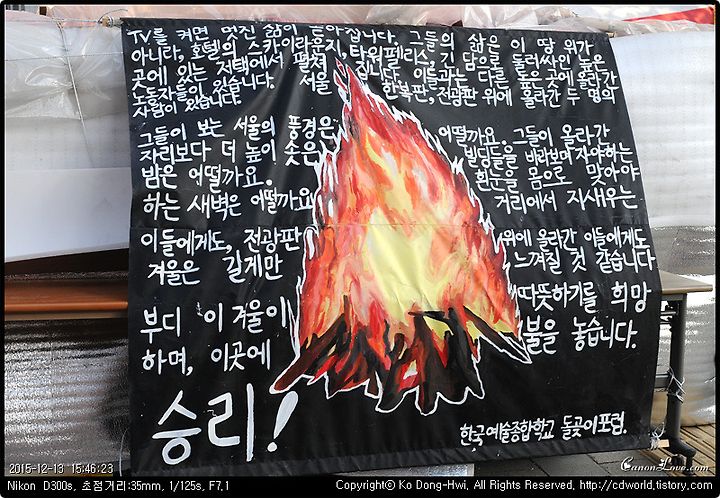 TV를 켜면 멋진 삶이 쏟아집니다. 그들의 삶은 이 땅 위가
아니라, 호텔의 스카이라운지, 타워펠리스, 긴 담으로 둘러싸인 높은
곳에 있는 저택에서 펼쳐집니다. 이들과는 다른 높은 곳에 올라간
노동자들이 있습니다. 서울 한복판, 전광판 위에 올라간 두 명의
사람이 있습니다.
그들이 보는 서울의 풍경은 어떨까요. 그들이 올라간
자리보다 더 높이 솟은 빌딩들을 바라보며 자야하는
밤은 어떨까요. 흰눈을 몸으로 맞아야
하는 새벽은 어떨까요 거리에서 지새우는
이들에게도, 전광판 위에 올라간 이들에게도
겨울은 길게만 느껴질 것 같습니다
부디 이 겨울이 따뜻하기를 희망
하며, 이곳에 불을 놓습니다.
승리!
한국예술종합학교 돌곶이포럼.
2015-12-13 15:46:23
CanonLove.com
Nikon D300s, 초점거리:35mm, 1/125s, F7.1 Copyright© Ko Dong-Hwi, All Rights Reserved, http://cdworld.tistory.com